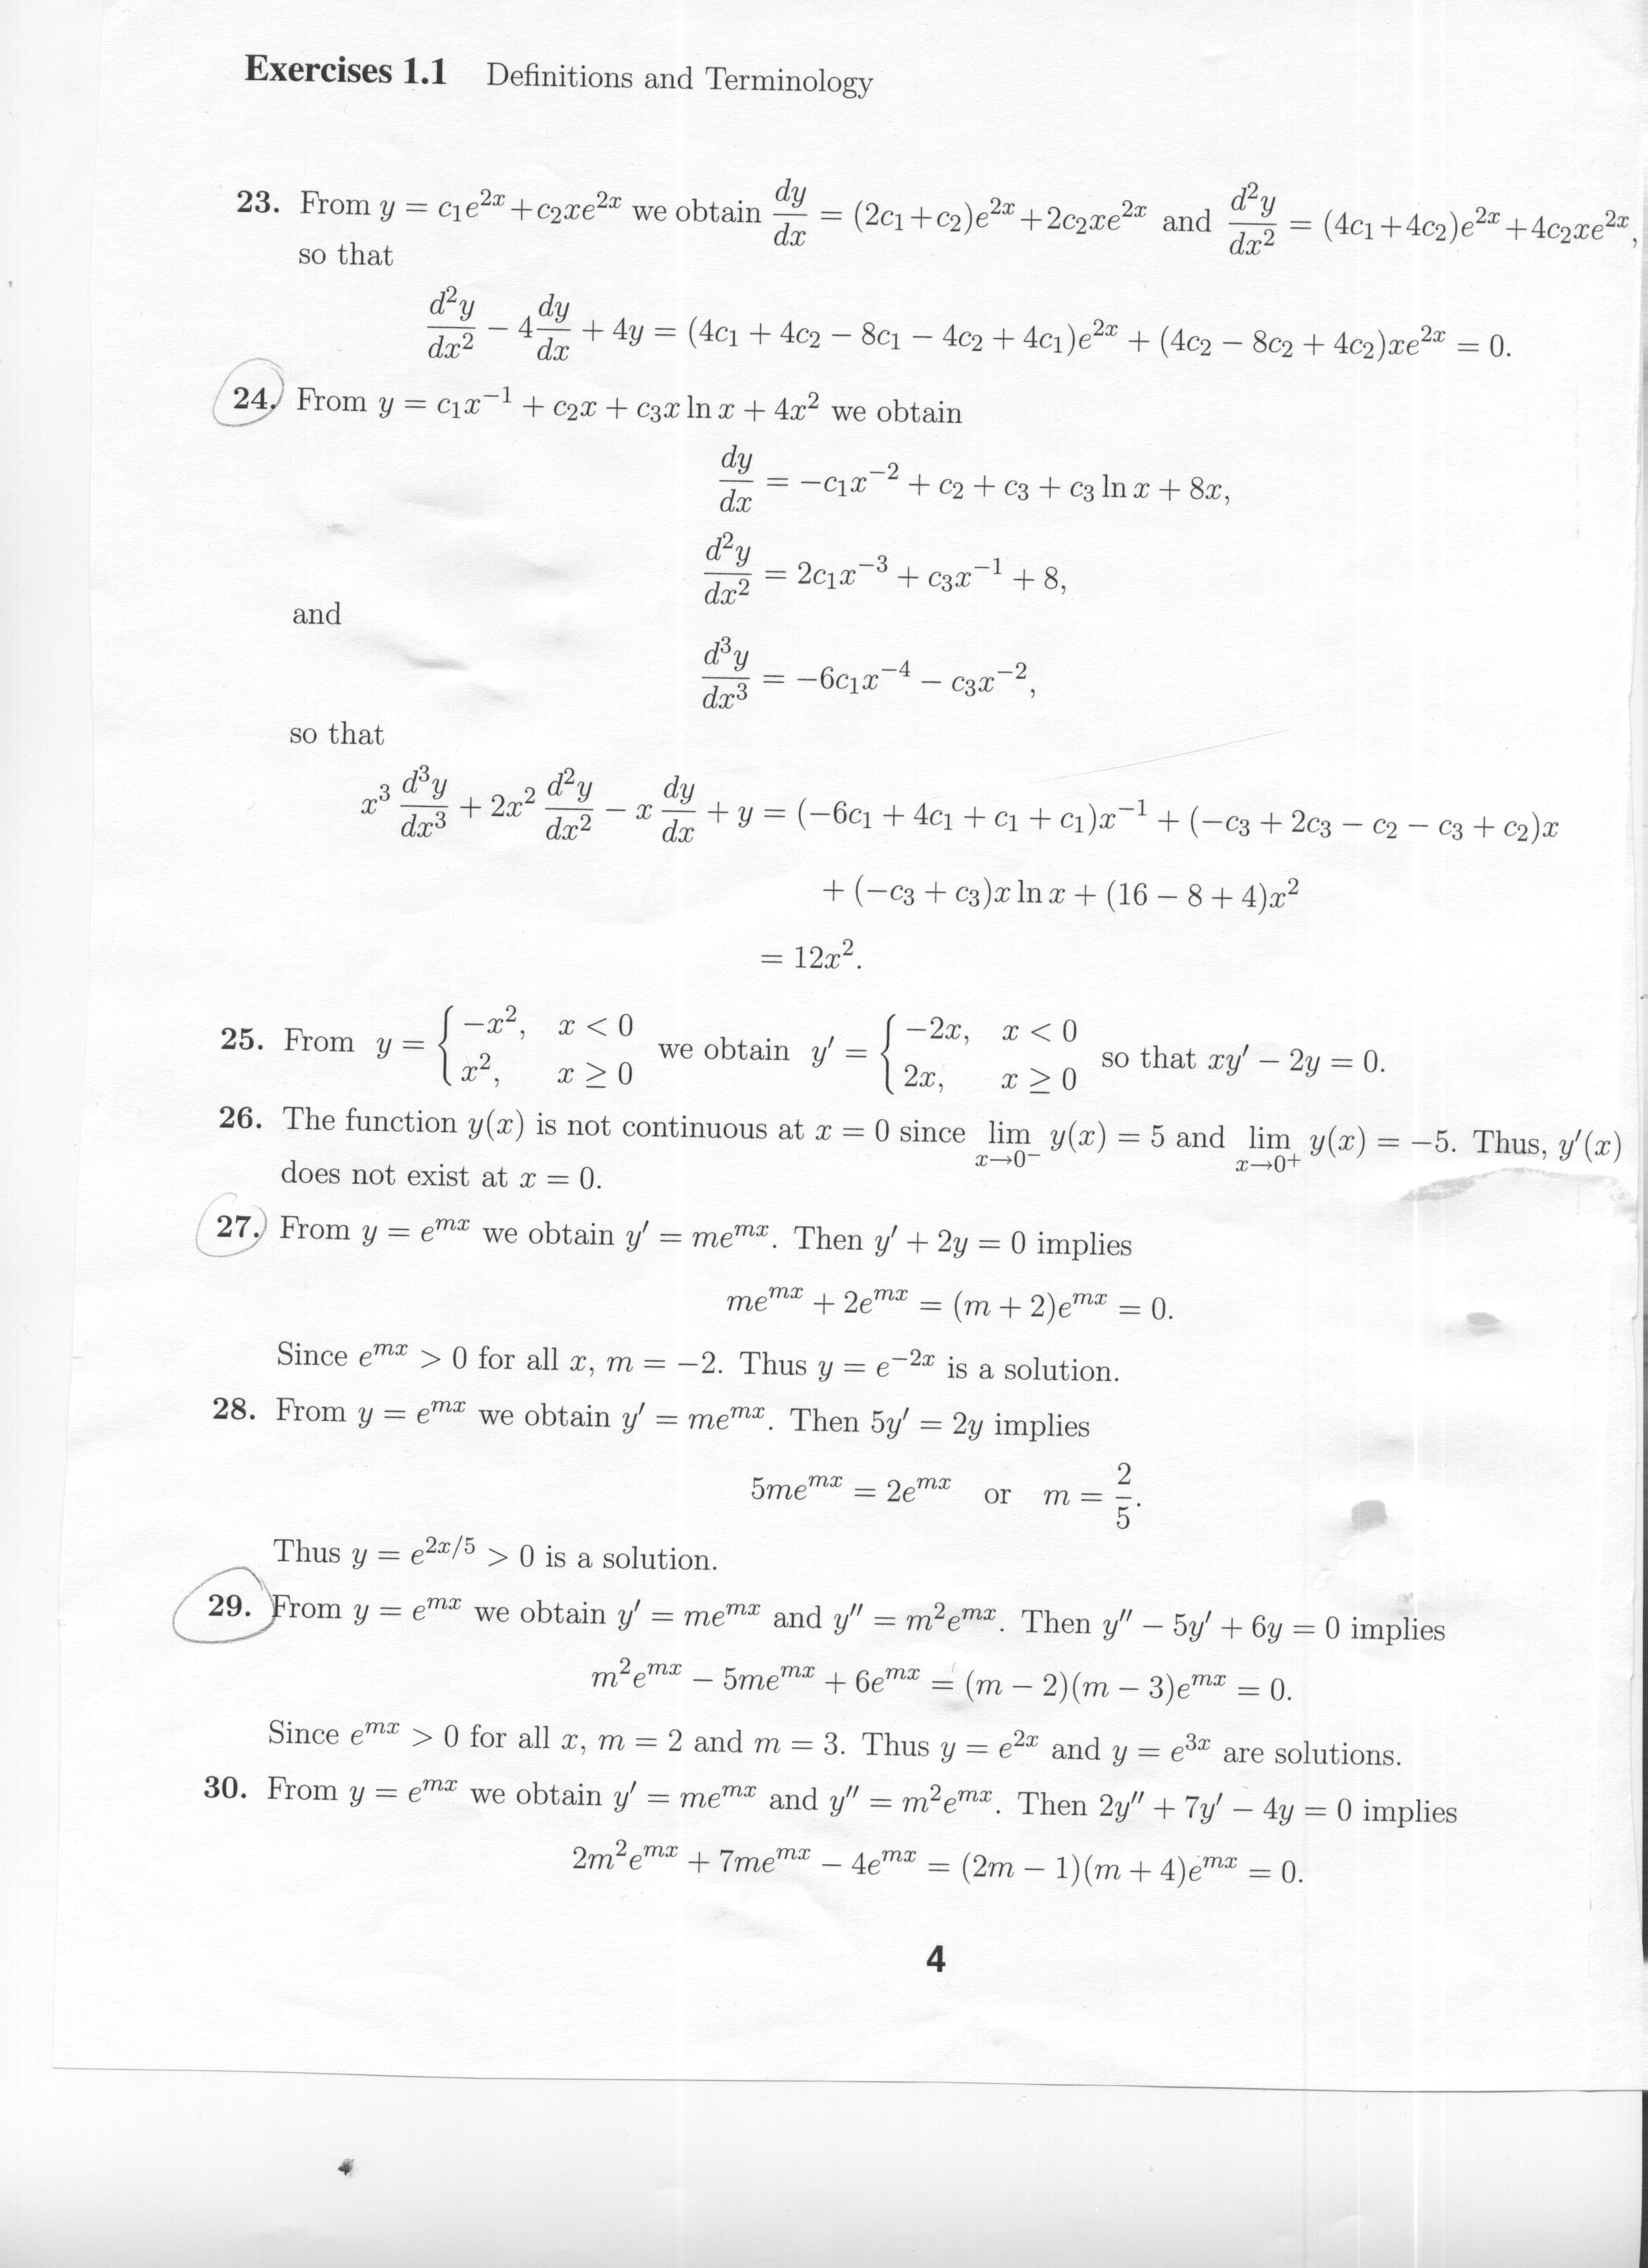 Exercises 1.1 Definitions and Terminology
23. From y = c₁e²ˣ + c₂xe²ˣ we obtain dy/dx = (2c₁ + c₂)e²ˣ + 2c₂xe²ˣ and d²y/dx² = (4c₁ + 4c₂)e²ˣ + 4c₂xe²ˣ,
so that
d²y/dx² − 4 dy/dx + 4y = (4c₁ + 4c₂ − 8c₁ − 4c₂ + 4c₁)e²ˣ + (4c₂ − 8c₂ + 4c₂)xe²ˣ = 0.
24. From y = c₁x⁻¹ + c₂x + c₃x ln x + 4x² we obtain
dy/dx = −c₁x⁻² + c₂ + c₃ + c₃ ln x + 8x,
d²y/dx² = 2c₁x⁻³ + c₃x⁻¹ + 8,
and
d³y/dx³ = −6c₁x⁻⁴ − c₃x⁻²,
so that
x³ d³y/dx³ + 2x² d²y/dx² − x dy/dx + y = (−6c₁ + 4c₁ + c₁ + c₁)x⁻¹ + (−c₃ + 2c₃ − c₂ − c₃ + c₂)x
+ (−c₃ + c₃)x ln x + (16 − 8 + 4)x²
= 12x².
25. From y = { −x², x < 0; x², x ≥ 0 we obtain y′ = { −2x, x < 0; 2x, x ≥ 0 so that xy′ − 2y = 0.
26. The function y(x) is not continuous at x = 0 since lim x→0⁻ y(x) = 5 and lim x→0⁺ y(x) = −5. Thus, y′(x)
does not exist at x = 0.
27. From y = eᵐˣ we obtain y′ = meᵐˣ. Then y′ + 2y = 0 implies
meᵐˣ + 2eᵐˣ = (m + 2)eᵐˣ = 0.
Since eᵐˣ > 0 for all x, m = −2. Thus y = e⁻²ˣ is a solution.
28. From y = eᵐˣ we obtain y′ = meᵐˣ. Then 5y′ = 2y implies
5meᵐˣ = 2eᵐˣ or m = 2/5.
Thus y = e²ˣ/⁵ > 0 is a solution.
29. From y = eᵐˣ we obtain y′ = meᵐˣ and y″ = m²eᵐˣ. Then y″ − 5y′ + 6y = 0 implies
m²eᵐˣ − 5meᵐˣ + 6eᵐˣ = (m − 2)(m − 3)eᵐˣ = 0.
Since eᵐˣ > 0 for all x, m = 2 and m = 3. Thus y = e²ˣ and y = e³ˣ are solutions.
30. From y = eᵐˣ we obtain y′ = meᵐˣ and y″ = m²eᵐˣ. Then 2y″ + 7y′ − 4y = 0 implies
2m²eᵐˣ + 7meᵐˣ − 4eᵐˣ = (2m − 1)(m + 4)eᵐˣ = 0.
4